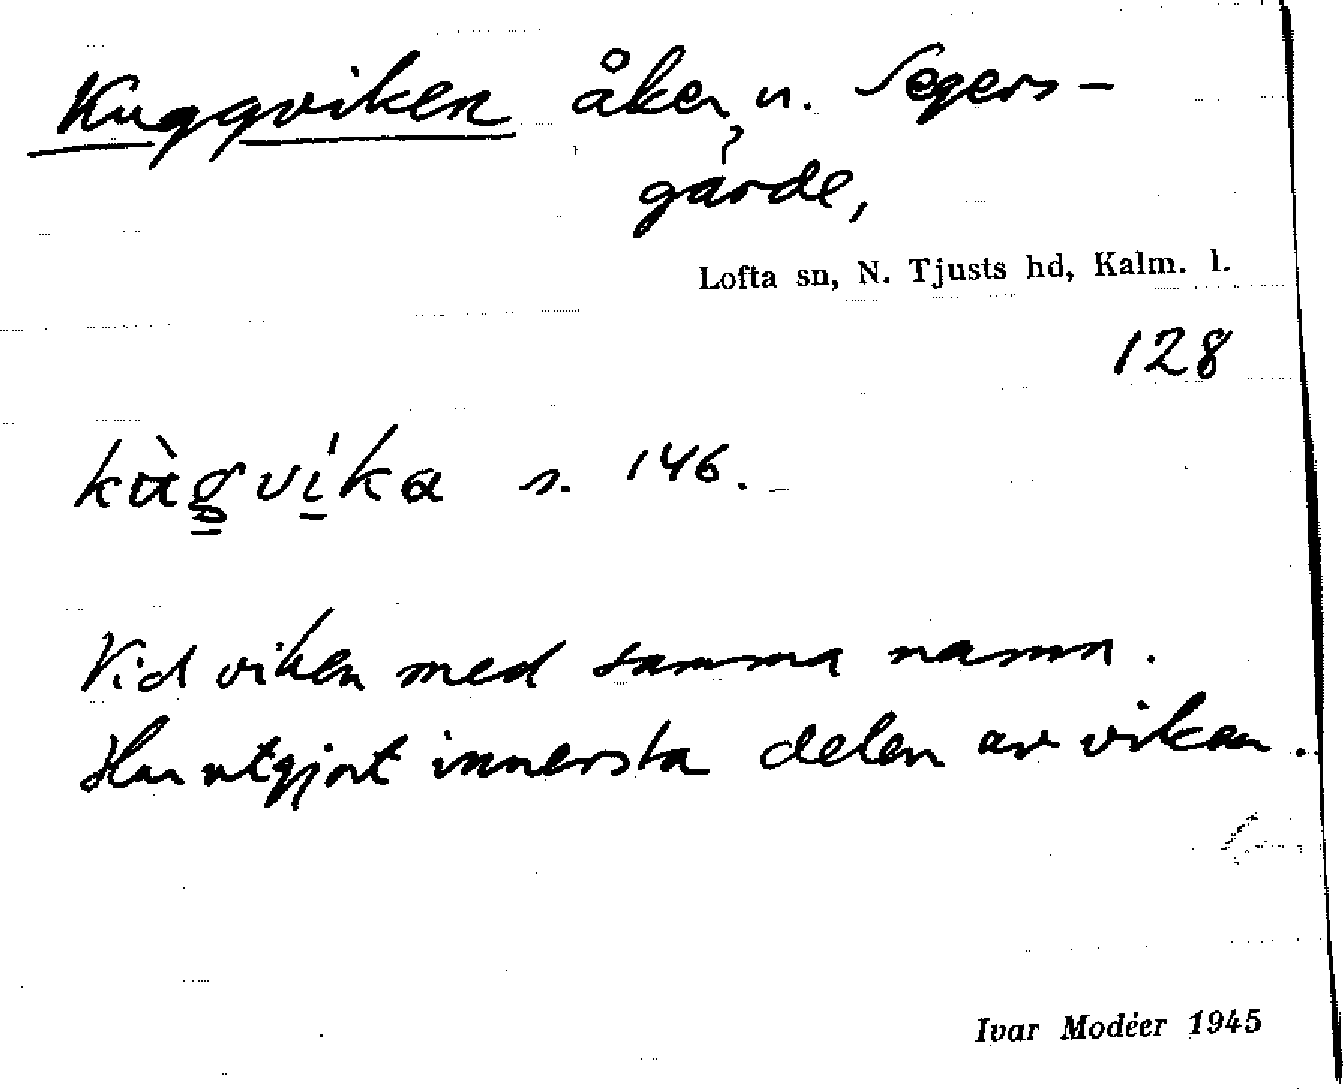 Kuggviken åker, u. Segers-
gärde,
Lofta sn, N. Tjusts hd, Kalm. l.
128
kùgvíka s. 146.
Vid viken med samma namn.
Har utgjort innersta delen av viken.
Ivar Modéer 1945